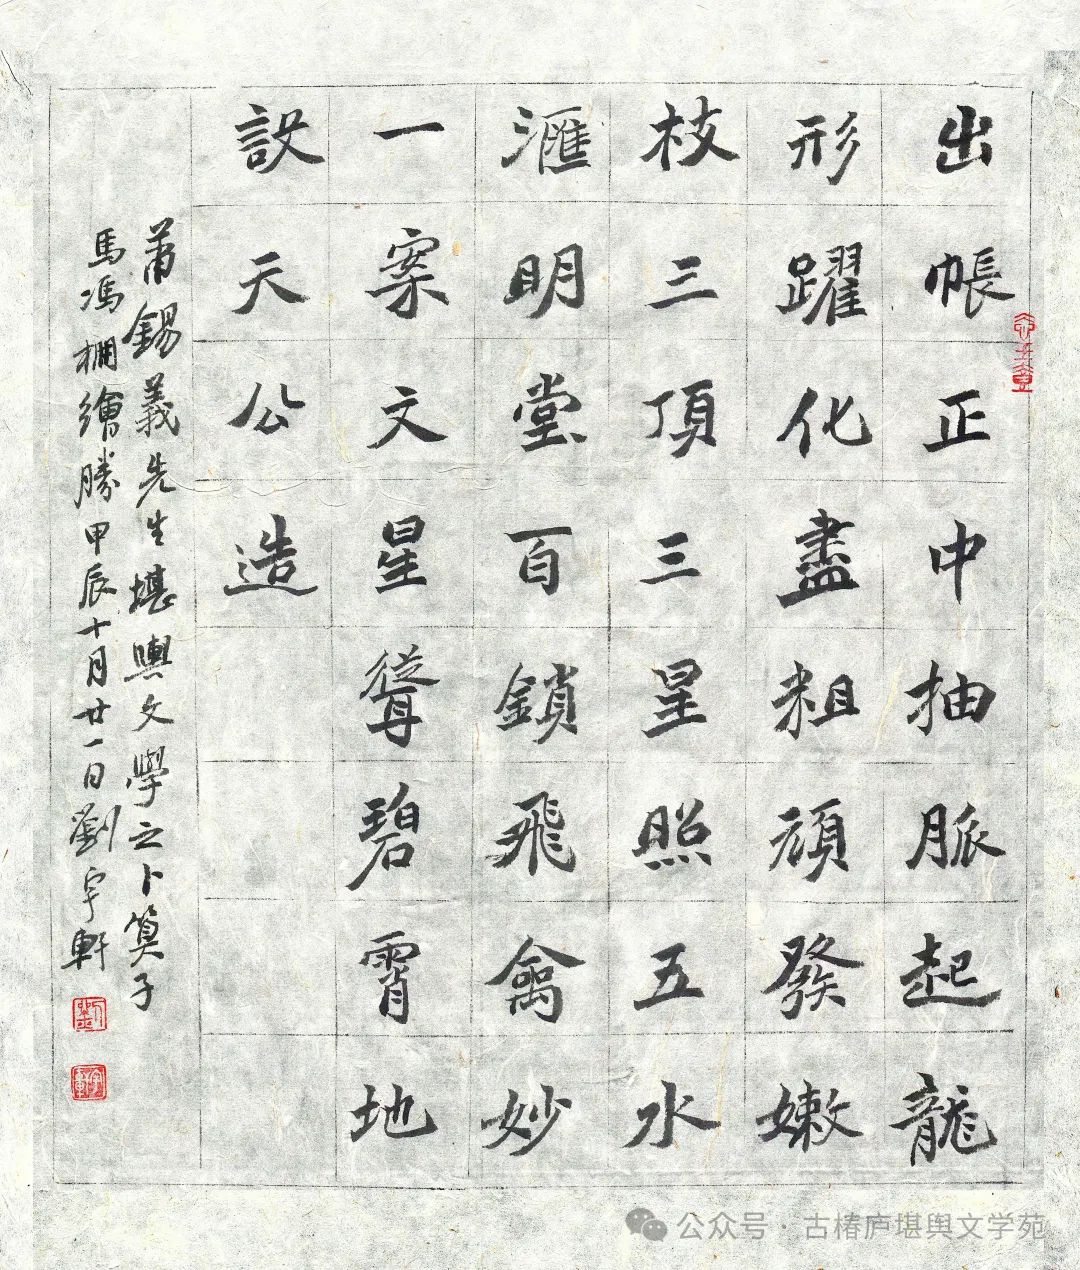 出帳正中抽脈起龍
形躍化盡粗頑發嫩
枝三頂三星照五水
滙明堂百鎖飛禽妙
一案文星聳碧霄地
訣天公造
蕭錫義先生堪輿文學之卜算子
馬馮棚繪勝甲辰十月廿一日劉宇軒
公众号 · 古椿庐堪舆文学苑